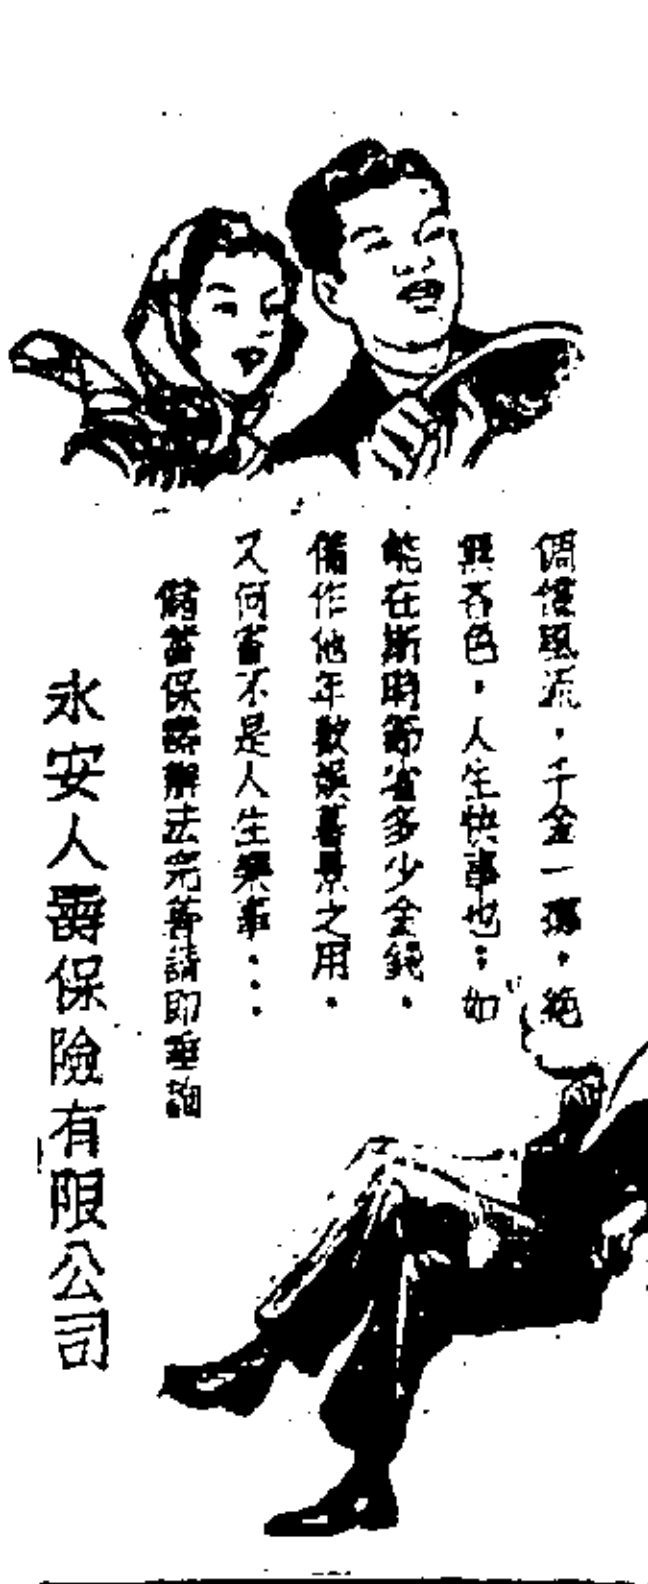 倜儻風流，千金一擲，絕
無吝色，人生快事也；如
能在斯時節省多少金錢，
備作他年歡娛暮景之用，
又何嘗不是人生樂事...
儲蓄保壽辦法完善請即垂詢
永安人壽保險有限公司